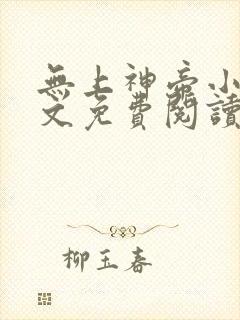 無上神帝小
文免費閱讀
柳玉春